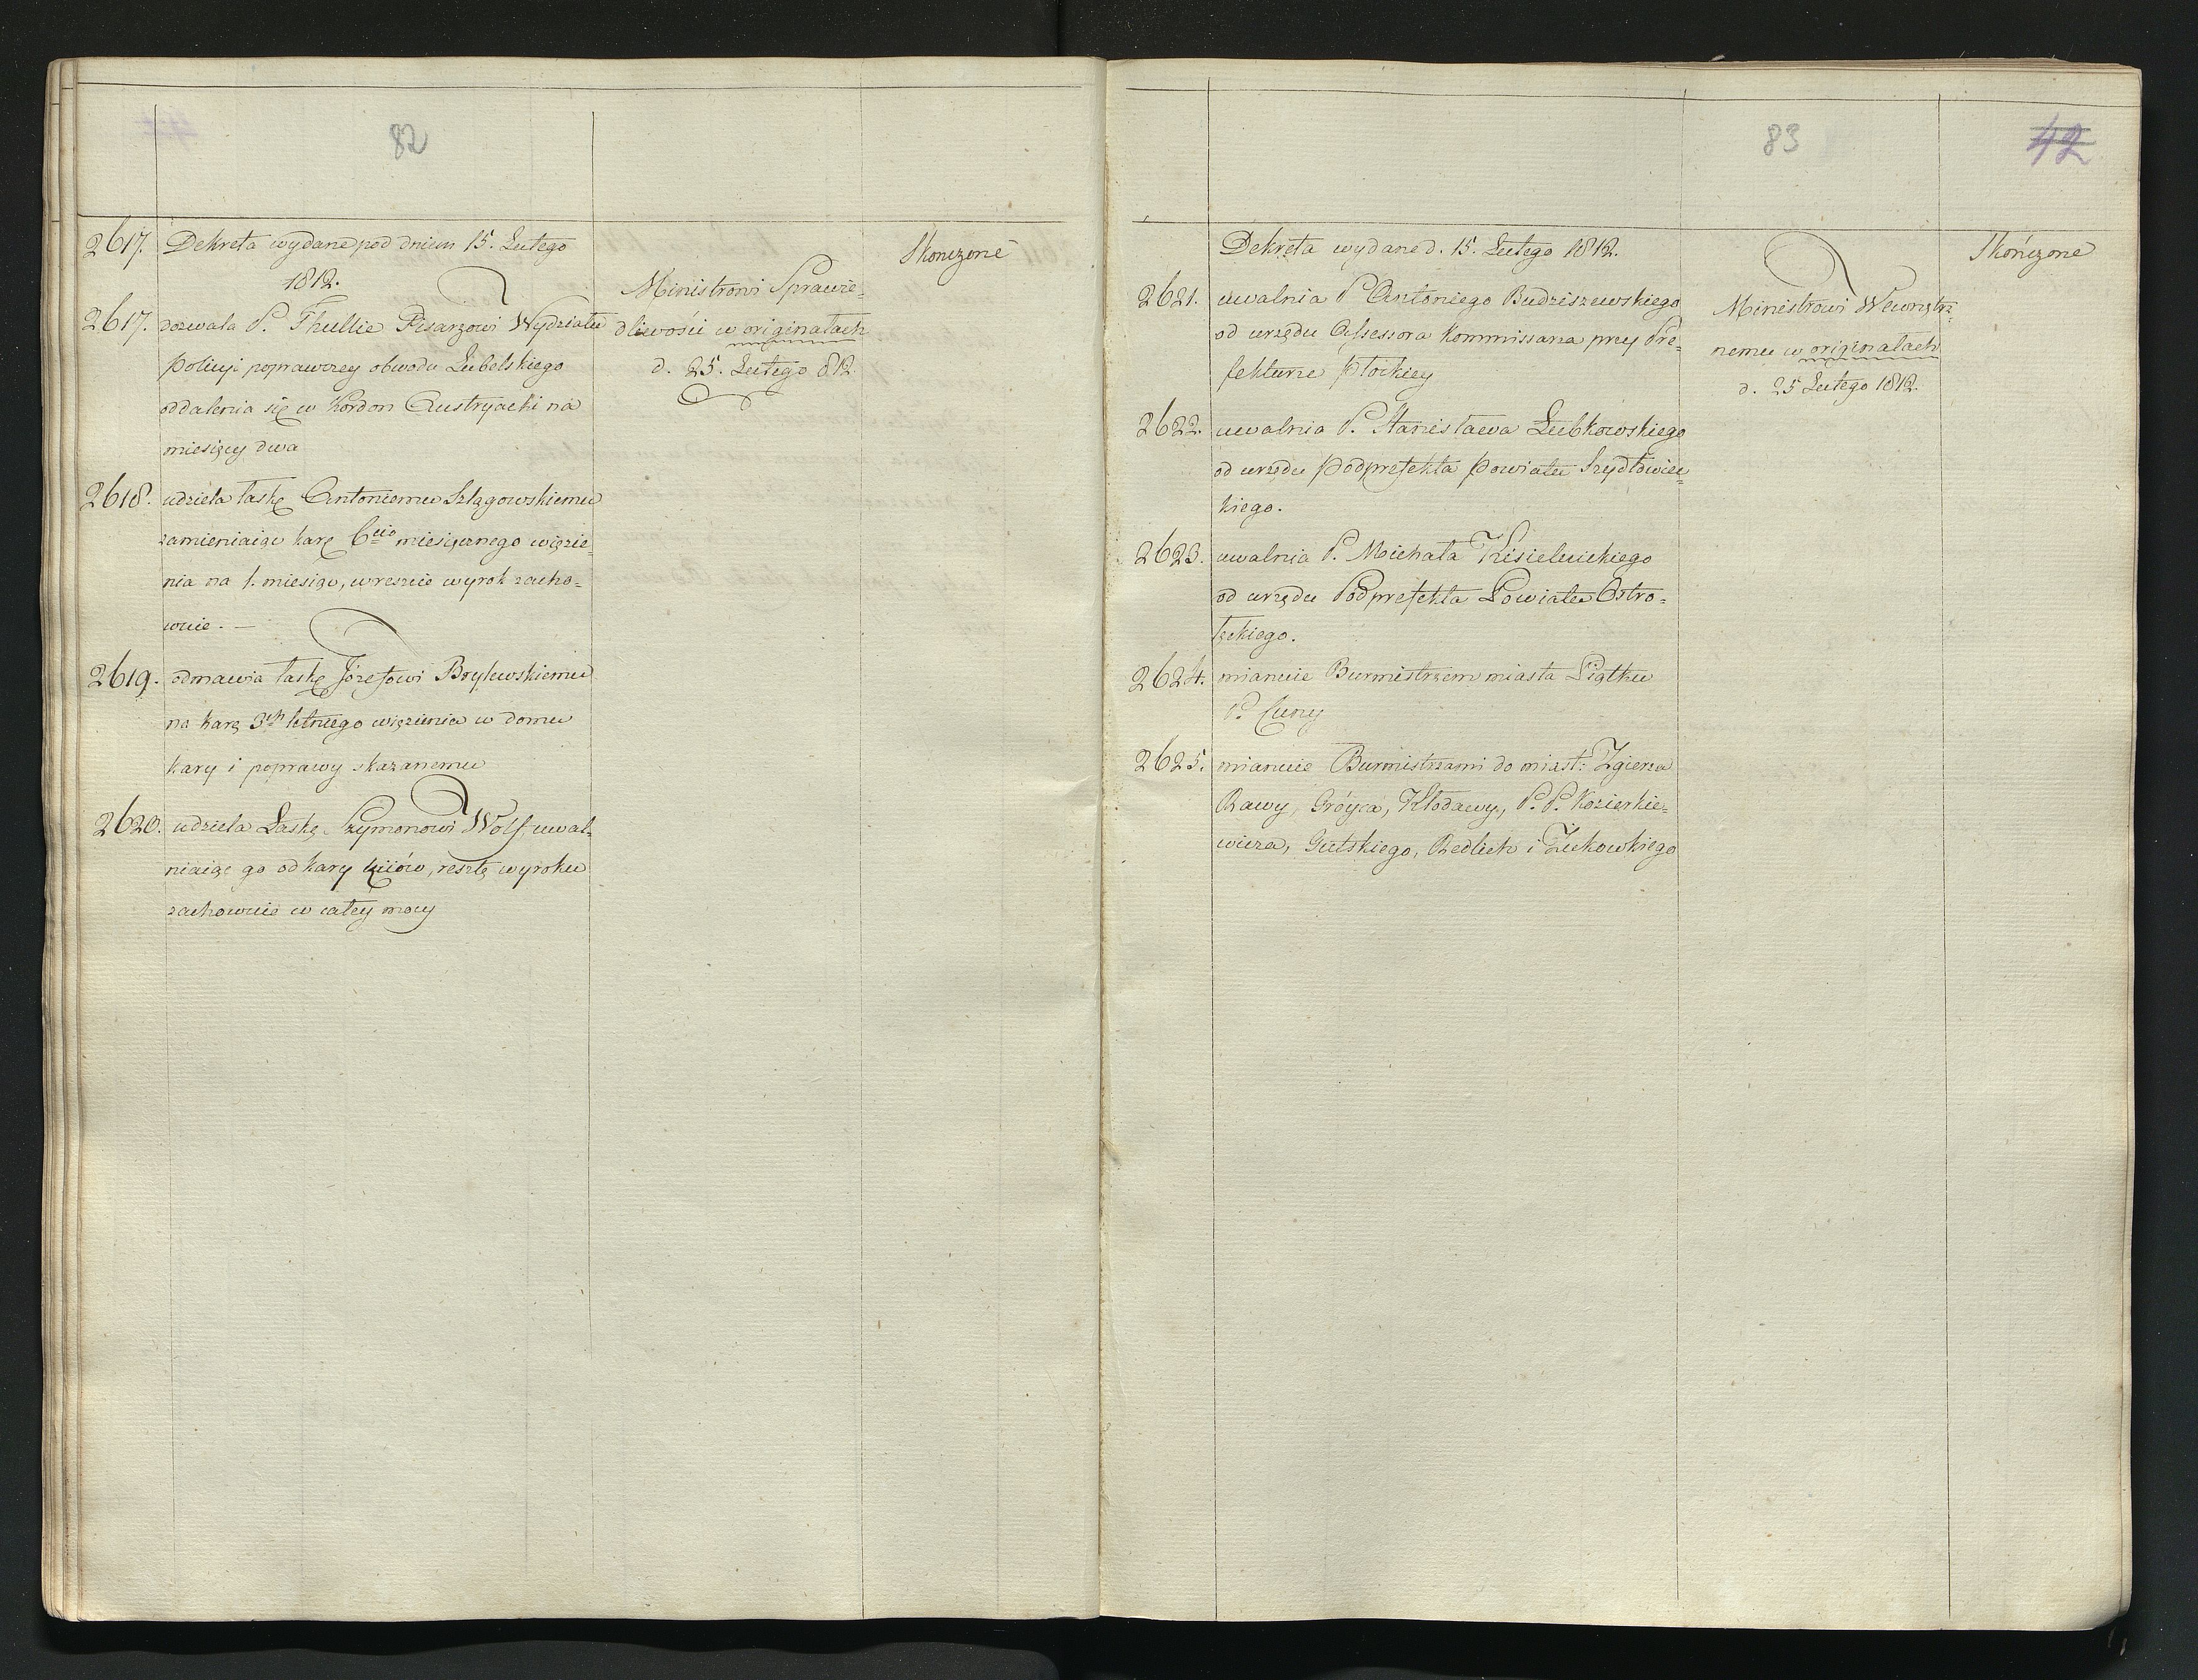 82
2617. Dekreta wydane pod dniem 15. Lutego
1812.
2617. dozwala P. Thullie Pisarzowi Wydziału
Policyi poprawczey obwodu Lubelskiego
oddalenia się w Kordon Austryacki na
miesięcy dwa
2618. udziela łaskę Antoniemu Szlągowskiemu
zamieniaiąc karę 6cio miesięcznego więzie=
nia na 1. miesiąc, wreszcie wyrok zacho=
wuie. —
2619. odmawia łaskę Józefowi Brylewskiemu
na karę 3ch letniego więzienia w domu
kary i poprawy skazanemu
2620. udziela Łaskę Szymonowi Wolf, uwal=
niaiąc go od kary kiiów, resztę wyroku
zachowuie w całey mocy
Ministrowi Sprawie=
dliwości w originałach
d. 25. Lutego 812.
Skonczone
83
42
Dekreta wydane d. 15. Lutego 1812.
2621. uwalnia P. Antoniego Budziszewskiego
od urzędu Assessora Kommissarza przy Pre=
fekturze Płockiey
2622. uwalnia P. Stanisława Łubkowskiego
od urzędu Podprefekta Powiatu Szydłowiec=
kiego.
2623. uwalnia P. Michała Kisielnickiego
od urzędu Podprefekta Powiatu Ostro=
łęckiego.
2624. mianuie Burmistrzem miasta Piątku
P. Cuny
2625. mianuie Burmistrzami do miast: Zgierza
Rawy, Gróyca, Kłodawy, P. P. Kozierkie=
wicza, Gutskiego, Redlich i Żukowkiego
Ministrowi Wewnętrz=
nemu w originałach
d. 25 Lutego 1812.
Skończone